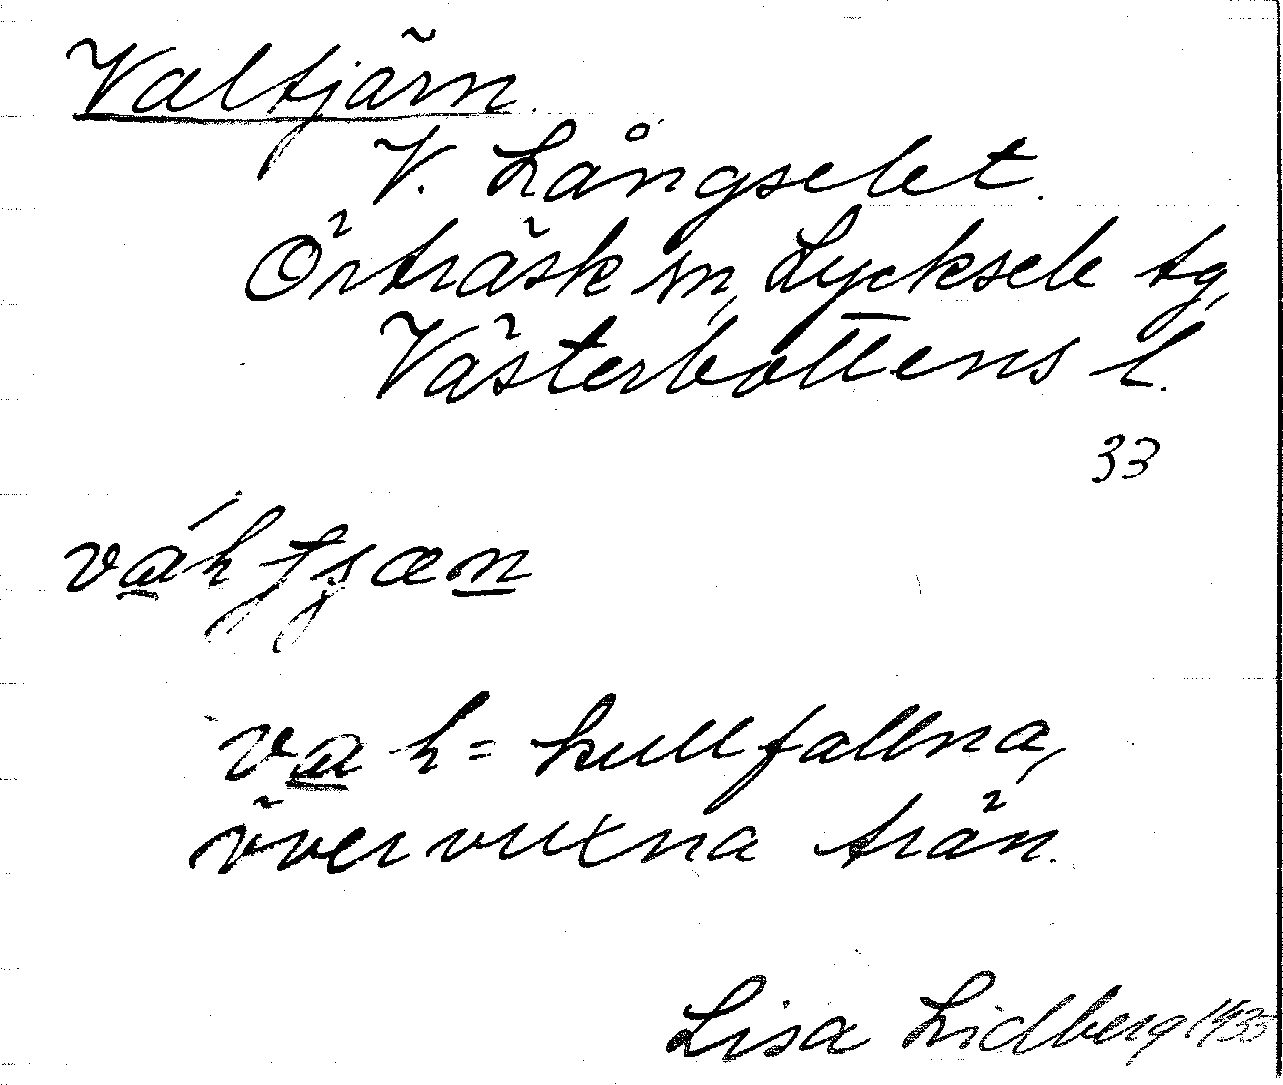 Valtjärn.
V. Långselet.
Örträsk sn, Lycksele tg,
Västerbottens l.
33
váh tjæn
vah = kullfallna,
övervuxna trän.
Lisa Lidberg 1935